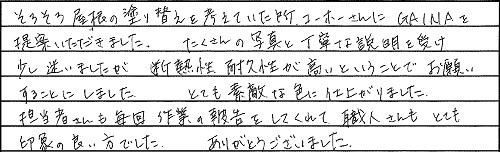 そろそろ屋根の塗り替えを考えていた所、コーホーさんに GAINAを
提案いただきました。 たくさんの写真と丁寧な説明を受け
少し迷いましたが 断熱性 耐久性が高いということで お願い
することにしました とても素敵な色に仕上がりました。
担当者さんも毎回 作業の報告をしてくれて 職人さんも とても
印象の良い方でした。 ありがとうございました。